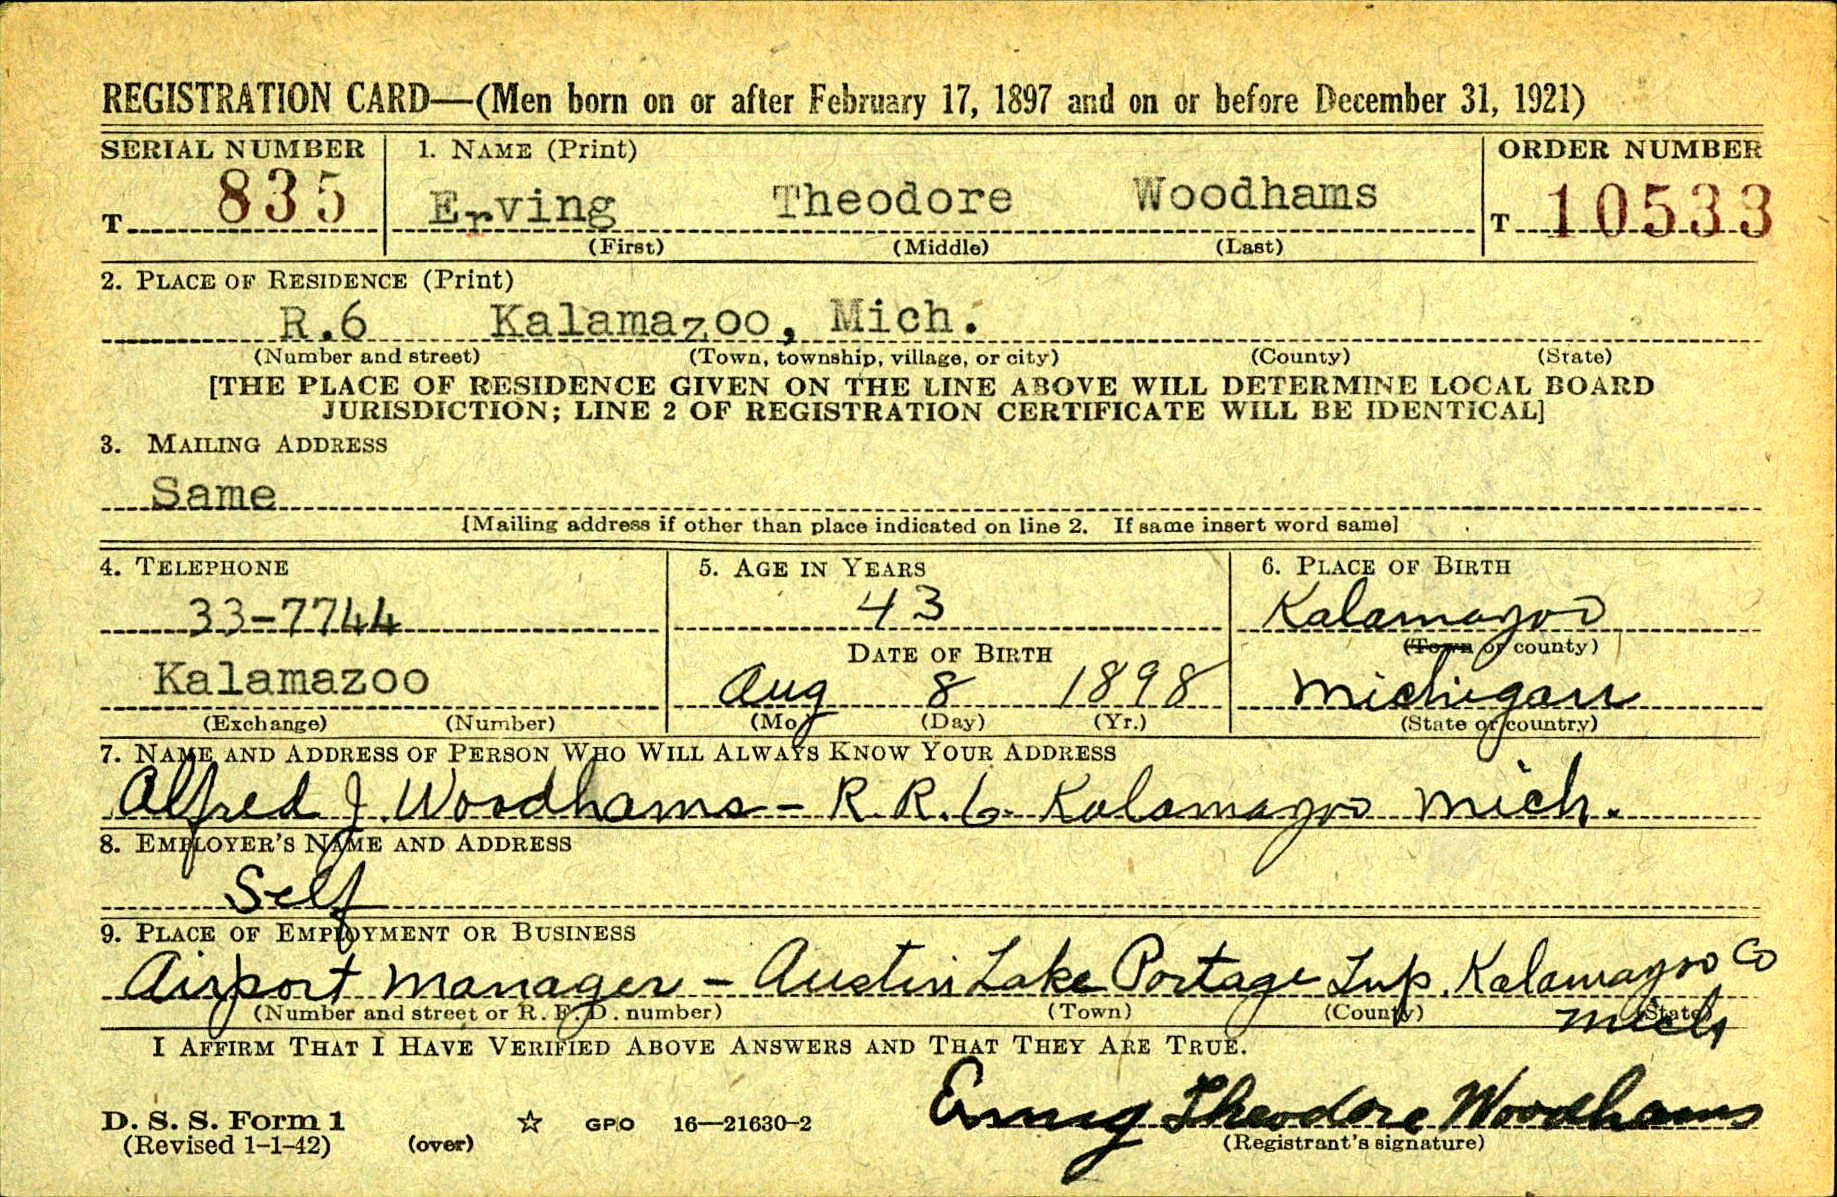 REGISTRATION CARD—(Men born on or after February 17, 1897 and on or before December 31, 1921)
SERIAL NUMBER 1. NAME (Print) ORDER NUMBER
T 835 Erving Theodore Woodhams T 10533
(First) (Middle) (Last)
2. PLACE OF RESIDENCE (Print)
R.6 Kalamazoo, Mich.
(Number and street) (Town, township, village, or city) (County) (State)
[THE PLACE OF RESIDENCE GIVEN ON THE LINE ABOVE WILL DETERMINE LOCAL BOARD
JURISDICTION; LINE 2 OF REGISTRATION CERTIFICATE WILL BE IDENTICAL]
3. MAILING ADDRESS
Same
[Mailing address if other than place indicated on line 2. If same insert word same]
4. TELEPHONE 5. AGE IN YEARS 6. PLACE OF BIRTH
33-7744 43 Kalamazoo
DATE OF BIRTH (Town or county)
Kalamazoo Aug 8 1898 Michigan
(Exchange) (Number) (Mo.) (Day) (Yr.) (State or country)
7. NAME AND ADDRESS OF PERSON WHO WILL ALWAYS KNOW YOUR ADDRESS
Alfred J. Woodhams - R.R.6. Kalamazoo Mich.
8. EMPLOYER'S NAME AND ADDRESS
Self
9. PLACE OF EMPLOYMENT OR BUSINESS
Airport Manager - Austin Lake Portage Twp. Kalamazoo Co
(Number and street or R. F. D. number) (Town) (County) (State)
Mich
I AFFIRM THAT I HAVE VERIFIED ABOVE ANSWERS AND THAT THEY ARE TRUE.
Erving Theodore Woodhams
D. S. S. Form 1 ☆ GPO 16—21630-2
(Revised 1-1-42) (over) (Registrant's signature)